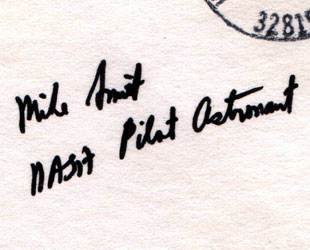 3281
Mike Smith
NASA Pilot Astronaut